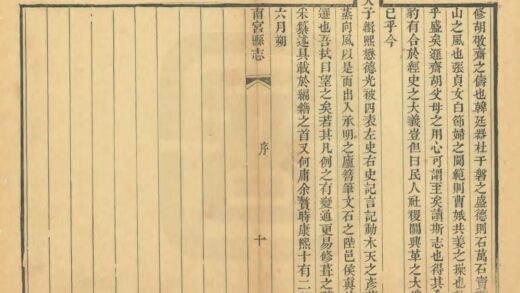 修胡敬齋之儔也韓廷器杜于磐之盛德則石萬石寶
山之風也張貞女白節婦之閫範則曹娥共姜之操也
乎盛矣遜齋胡父母之用心可謂至矣讀斯志也得其
豹有合於經史之大義豈但曰民人社稷關興革之大
已乎今
天子緝熙懋德光被四表左史右史記言記動木天之彥
蒸蒸向風以是而出入承明之廬簪筆文石之陛邑侯真
選也吾拭目望之矣若其凡例之有變通更易修葺之
采纂述具載於編緒之首又何庸余贅時康熙十有二
六月朔
南宮縣志
序
十